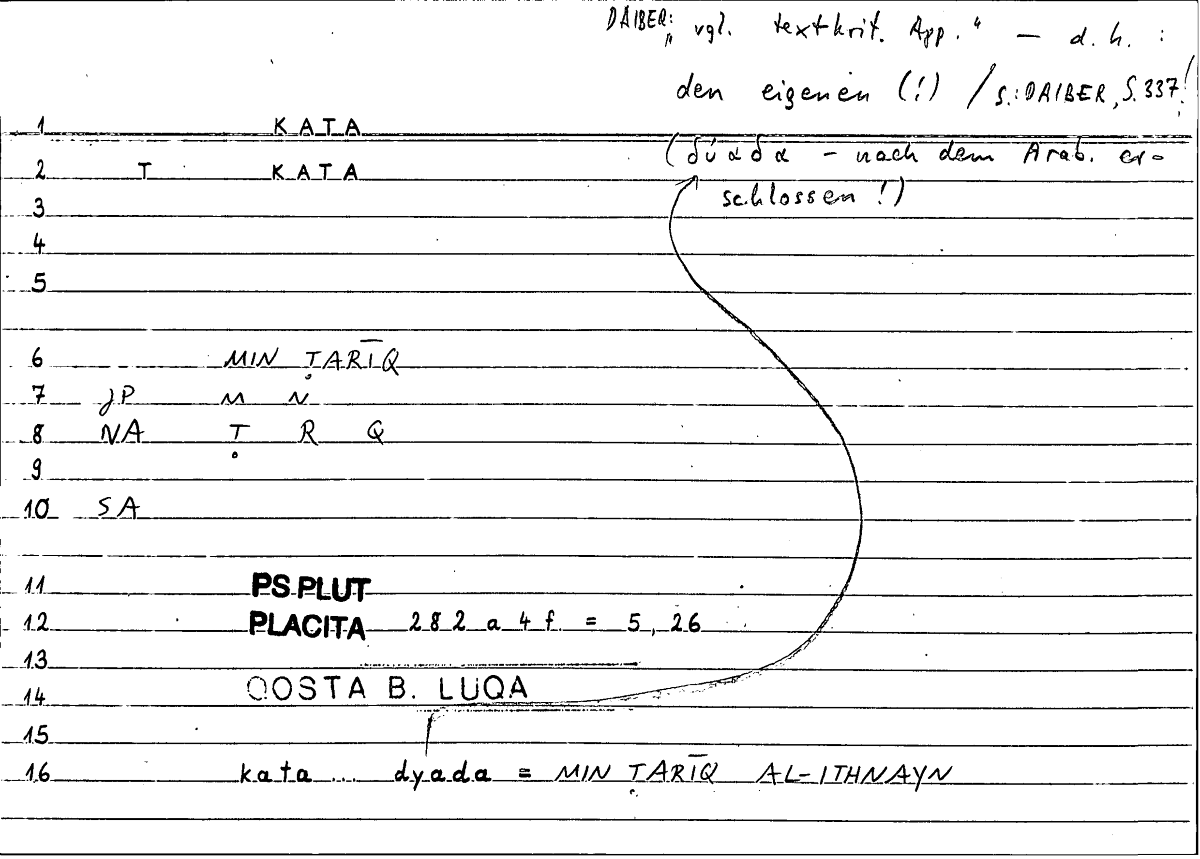 DAIBER: „vgl. textkrit. App." — d.h. :
den eigenen (!) / s.: DAIBER, S. 337!
(δύαδα - nach dem Arab. er-
schlossen!)
1 KATA
2 T KATA
3
4
5
6 MIN ṬARĪQ
7 JP M N
8 NA Ṭ R Q
9
10 SA
11 PS.PLUT
12 PLACITA 282 a 4 f. = 5, 26
13
14 QOSTA B. LUQA
15
16 kata ... dyada = MIN ṬARĪQ AL-ITHNAYN